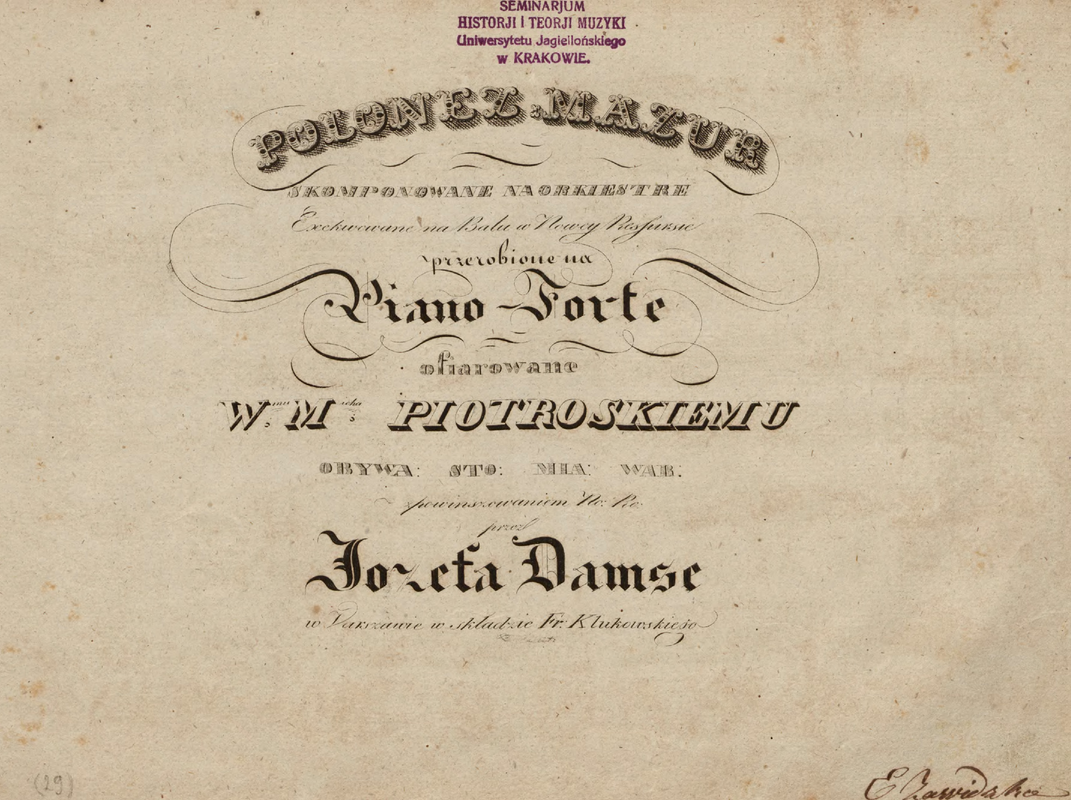 SEMINARJUM
HISTORJI I TEORJI MUZYKI
Uniwersytetu Jagiellońskiego
w KRAKOWIE.
POLONEZ i MAZUR
SKOMPONOWANE NA ORKIESTRE
Exekwowane na Balu w Nowey Ressursie
przerobione na
Piano-Forte
ofiarowane
W. M. PIOTROSKIEMU
OBYWA: STO: MIA: WAR:
z powinszowaniem No: Ro:
przez
Jozefa Damse
w Warszawie w składzie Fr. Klukowskiego
(29)